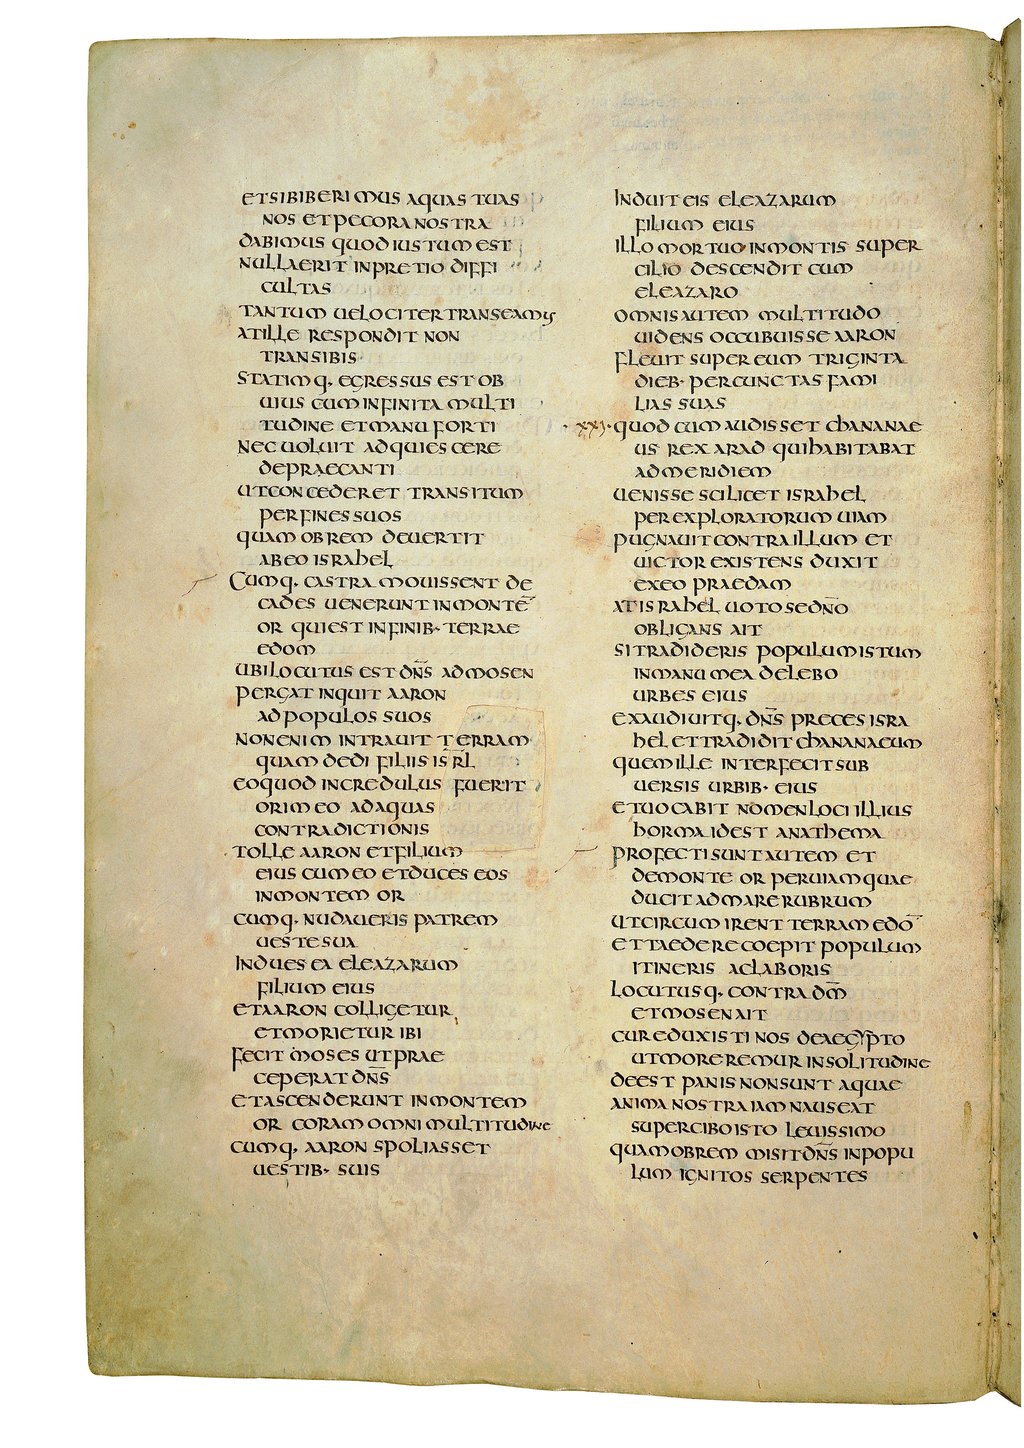 ETSIBIBERIMUS AQUAS TUAS
NOS ET PECORA NOSTRA
DABIMUS QUOD IUSTUM EST
NULLA ERIT IN PRETIO DIFFI
CULTAS
TANTUM UELOCITER TRANSEAMUS
AT ILLE RESPONDIT NON
TRANSIBIS
STATIMQ· EGRESSUS EST OB
UIUS CUM INFINITA MULTI
TUDINE ET MANU FORTI
NEC UOLUIT ADQUIESCERE
DEPRAECANTI
UT CONCEDERET TRANSITUM
PER FINES SUOS
QUAM OB REM DEUERTIT
AB EO ISRAHEL
CUMQ· CASTRA MOUISSENT DE
CADES UENERUNT IN MONTE̅
OR QUI EST IN FINIB· TERRAE
EDOM
UBI LOCUTUS EST DN̅S AD MOSEN
PERGAT INQUIT AARON
AD POPULOS SUOS
NON ENIM INTRAUIT TERRAM
QUAM DEDI FILIIS ISR̅L
EO QUOD INCREDULUS FUERIT
ORI MEO AD AQUAS
CONTRADICTIONIS
TOLLE AARON ET FILIUM
EIUS CUM EO ET DUCES EOS
IN MONTEM OR
CUMQ· NUDAUERIS PATREM
UESTE SUA
INDUES EA ELEAZARUM
FILIUM EIUS
ET AARON COLLIGETUR
ET MORIETUR IBI
FECIT MOSES UT PRAE
CEPERAT DN̅S
ET ASCENDERUNT IN MONTEM
OR CORAM OMNI MULTITUDINE
CUMQ· AARON SPOLIASSET
UESTIB· SUIS
INDUIT EIS ELEAZARUM
FILIUM EIUS
ILLO MORTUO IN MONTIS SUPER
CILIO DESCENDIT CUM
ELEAZARO
OMNIS AUTEM MULTITUDO
UIDENS OCCUBUISSE AARON
FLEUIT SUPER EUM TRIGINTA
DIEB· PER CUNCTAS FAMI
LIAS SUAS
·XXI· QUOD CUM AUDISSET CHANANAE
US REX ARAD QUI HABITABAT
AD MERIDIEM
UENISSE SCILICET ISRAHEL
PER EXPLORATORUM UIAM
PUGNAUIT CONTRA ILLUM ET
UICTOR EXISTENS DUXIT
EX EO PRAEDAM
AT ISRAHEL UOTO SE DN̅O
OBLIGANS AIT
SI TRADIDERIS POPULUM ISTUM
IN MANU MEA DELEBO
URBES EIUS
EXAUDIUITQ· DN̅S PRECES ISRA
HEL ET TRADIDIT CHANANAEUM
QUEM ILLE INTERFECIT SUB
UERSIS URBIB· EIUS
ET UOCABIT NOMEN LOCI ILLIUS
HORMA ID EST ANATHEMA
PROFECTI SUNT AUTEM ET
DE MONTE OR PER UIAM QUAE
DUCIT AD MARE RUBRUM
UT CIRCUMIRENT TERRAM EDO̅
ET TAEDERE COEPIT POPULUM
ITINERIS AC LABORIS
LOCUTUSQ· CONTRA DM̅
ET MOSEN AIT
CUR EDUXISTI NOS DE AEGYPTO
UT MOREREMUR IN SOLITUDINE
DEEST PANIS NON SUNT AQUAE
ANIMA NOSTRA IAM NAUSEAT
SUPER CIBO ISTO LEUISSIMO
QUAM OB REM MISIT DN̅S IN POPU
LUM IGNITOS SERPENTES